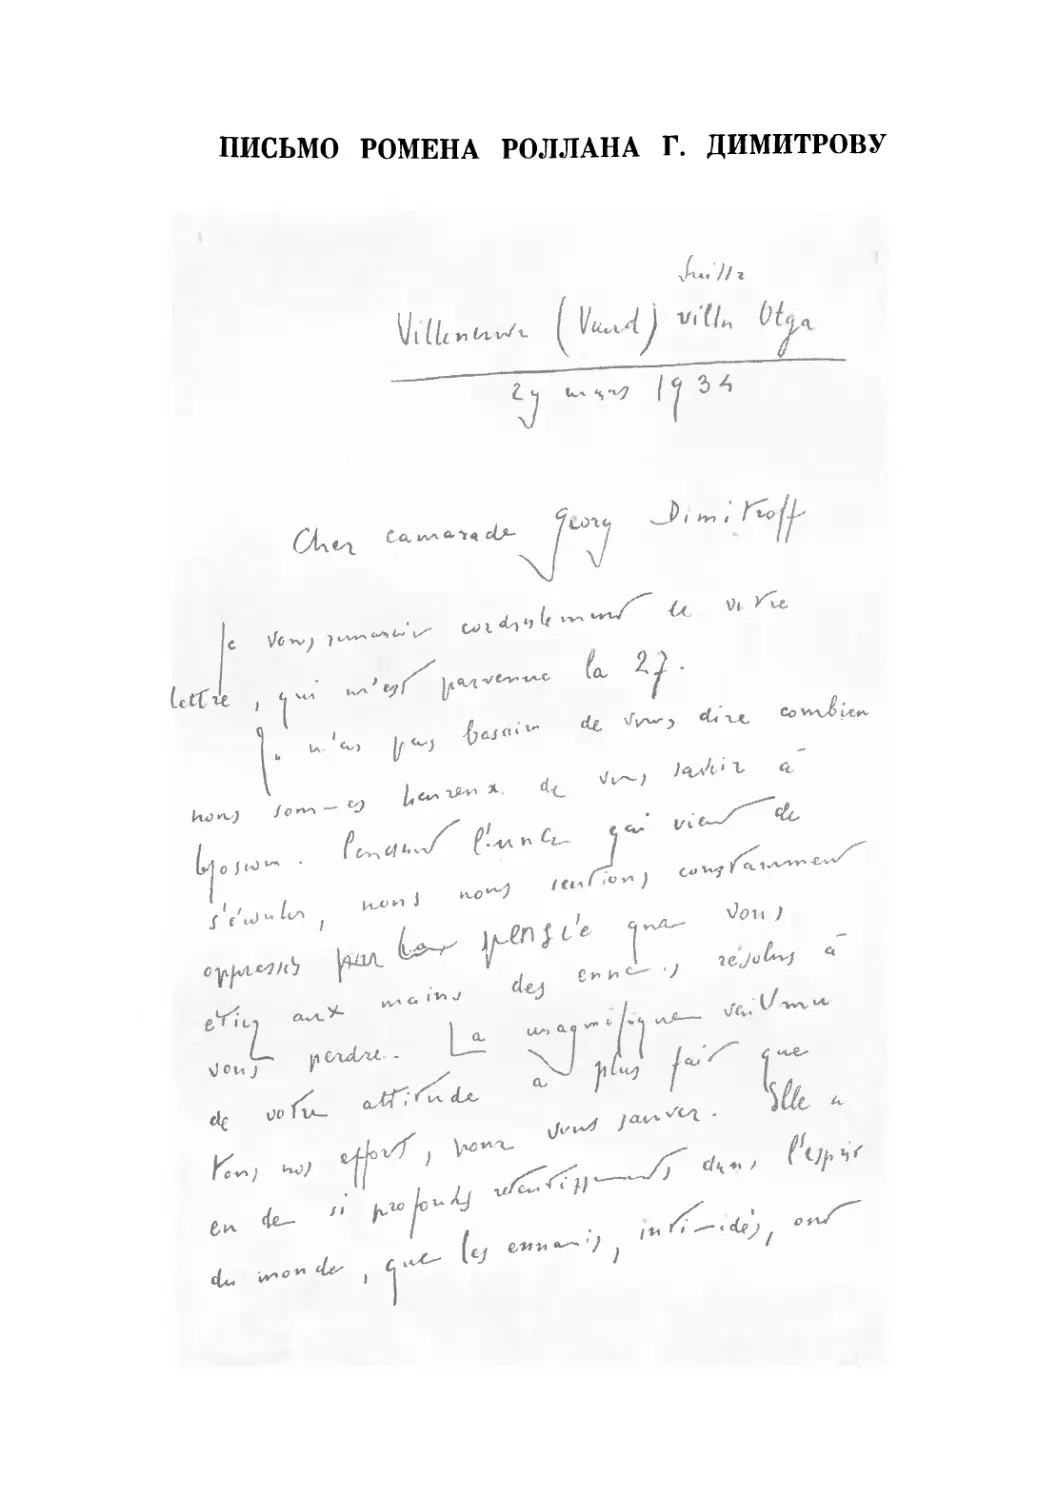 ПИСЬМО РОМЕНА РОЛЛАНА Г. ДИМИТРОВУ
Villeneuve (Vaud) villa Olga
29 mars 1934
Cher camarade Georg Dimitroff
Je vous remercie cordialement de votre
lettre, qui m'est parvenue le 27.
Je n'ai pas besoin de vous dire combien
nous sommes heureux de vous savoir à
Moscou. Pendant l'année qui vient de
s'écouler, nous nous sentions constamment
oppressés par la pensée que vous
étiez aux mains des ennemis résolus à
vous perdre. La magnifique vaillance
de votre attitude a plus fait que
tous nos efforts, pour vous sauver. Elle a
eu de si profonds retentissements dans l'esprit
du monde, que les ennemis, intimidés, ont